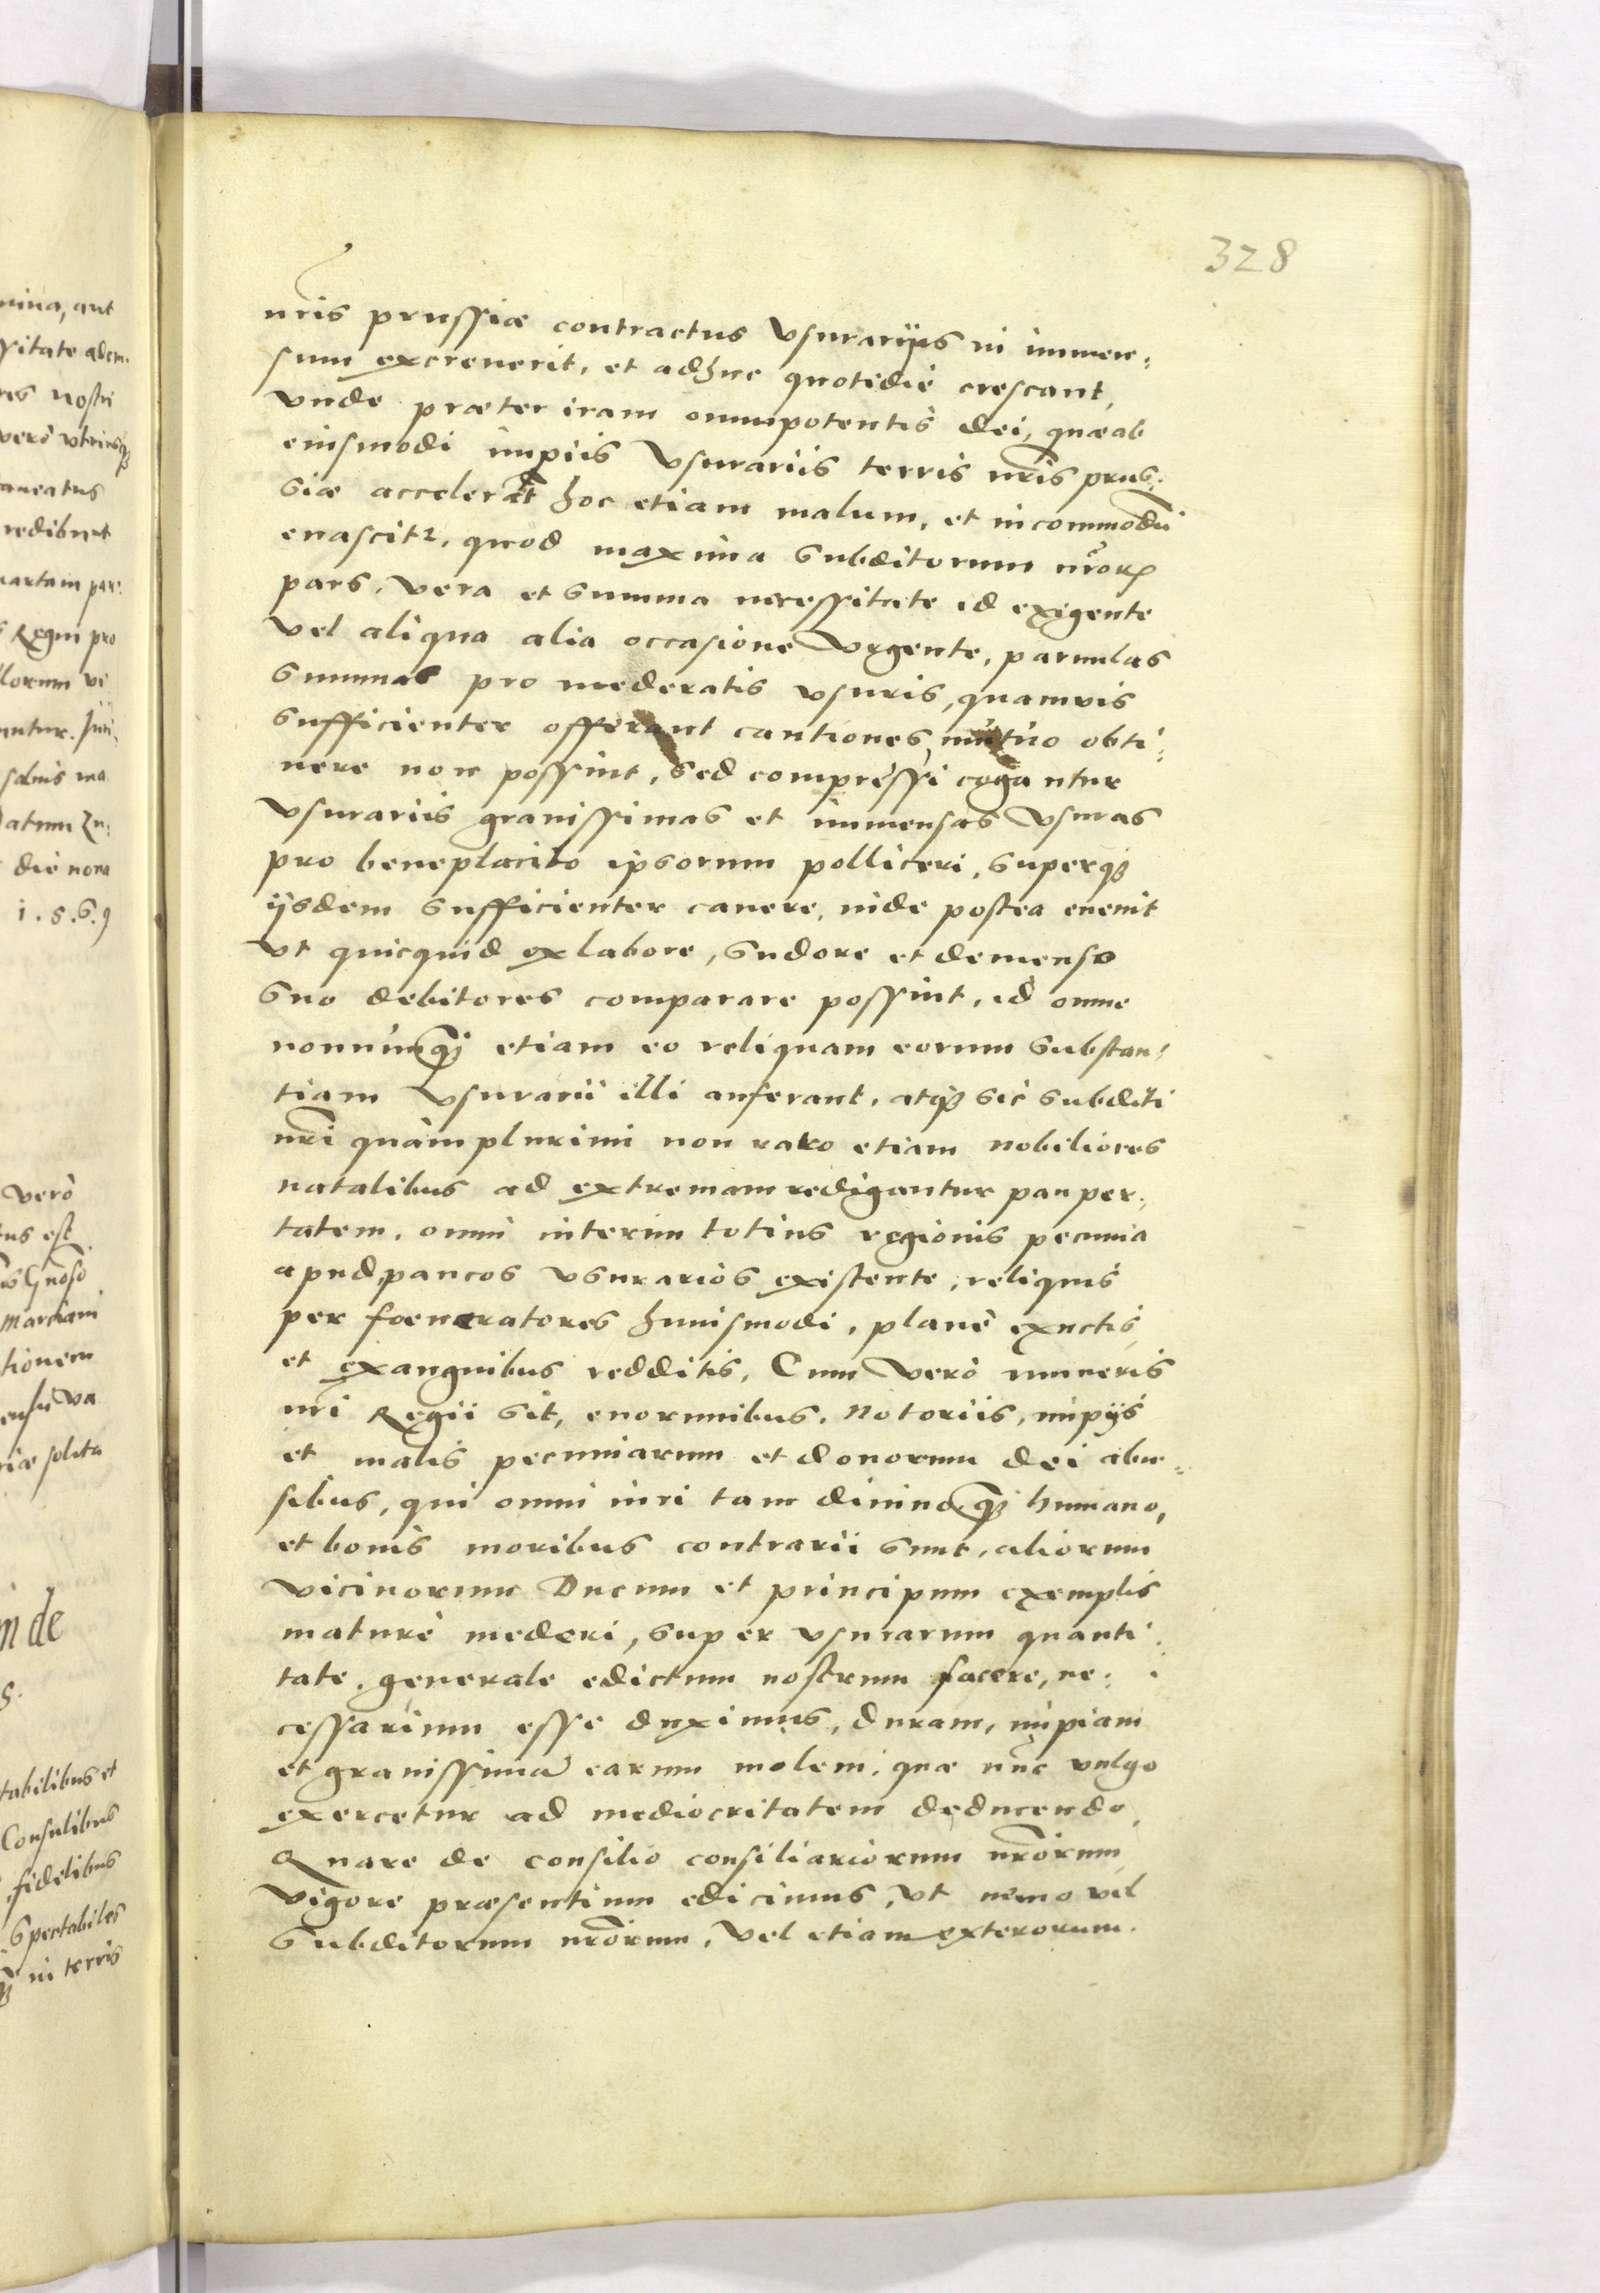 328
nris prussiæ contractus vsurarijs in immen:
sum excreuerit, et adhuc quotidie crescant,
vnde præter iram omnipotentis dei, quæ ab
eiusmodi impiis vsurariis terris nris prus:
siæ accelerat hoc etiam malum, et incommodu
enascitr, quod maxima subditorum nror
pars, vera et summa necessitate id exigente
vel aliqua alia occasione vrgente, paruulas
summas pro moderatis vsuris, quamvis
sufficienter offerant cautiones, mutuo obti:
nere non possint, sed compressi cogantur
vsurariis grauissimas et immensas vsuras
pro beneplacito ipsorum polliceri, superq
ijsdem sufficienter cauere, inde postea euenit
vt quicquid ex labore, sudore et demenso
suo debitores comparare possint, id omne
nonnunq etiam eo reliquam eorum substan:
tiam vsurarii illi auferant, atq sic subditi
nri quàm plurimi non raro etiam nobiliores
natalibus ad extremam redigantur pauper:
tatem, omni interim totius regionis pecunia
apud paucos vsurarios existente, reliquis
per foeneratores huiusmodi, planè exuctis
et exanguibus redditis, Cum verò muneris
nri Regii sit, enormibus, notoriis, impijs
et malis pecuniarum et donorum dei abu:
sibus, qui omni iuri tam diuino q humano,
et bonis moribus contrarii sunt, aliorum
vicinorum Ducum et principum exemplis
maturè mederi, super vsurarum quanti:
tate, generale edictum nostrum facere, ne:
cessarium esse duximus, duram, impiam
et grauissima earum molem, quæ nunc vulgo
exercetur ad mediocritatem deducendo,
Quare de consilio consiliariorum nrorum
vigore præsentium edicimus, vt nemo vel
subditorum nrorum, vel etiam exterorum.
vero
tus est
Marciani
tionem
riæ solita
tabilibus et
Consulibus
fidelibus
spectabiles
in terris